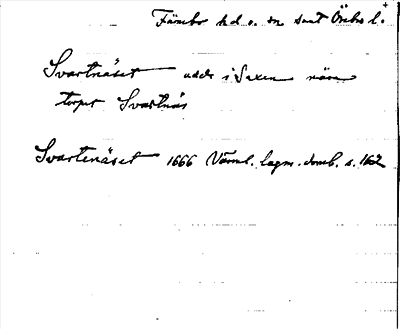 Färnebo hd o. sn samt Örebro l.
Svartnäset udde i Saxen nära
torpet Svartnäs
Svartenäset 1666 Värml. lagm. domb. s. 162